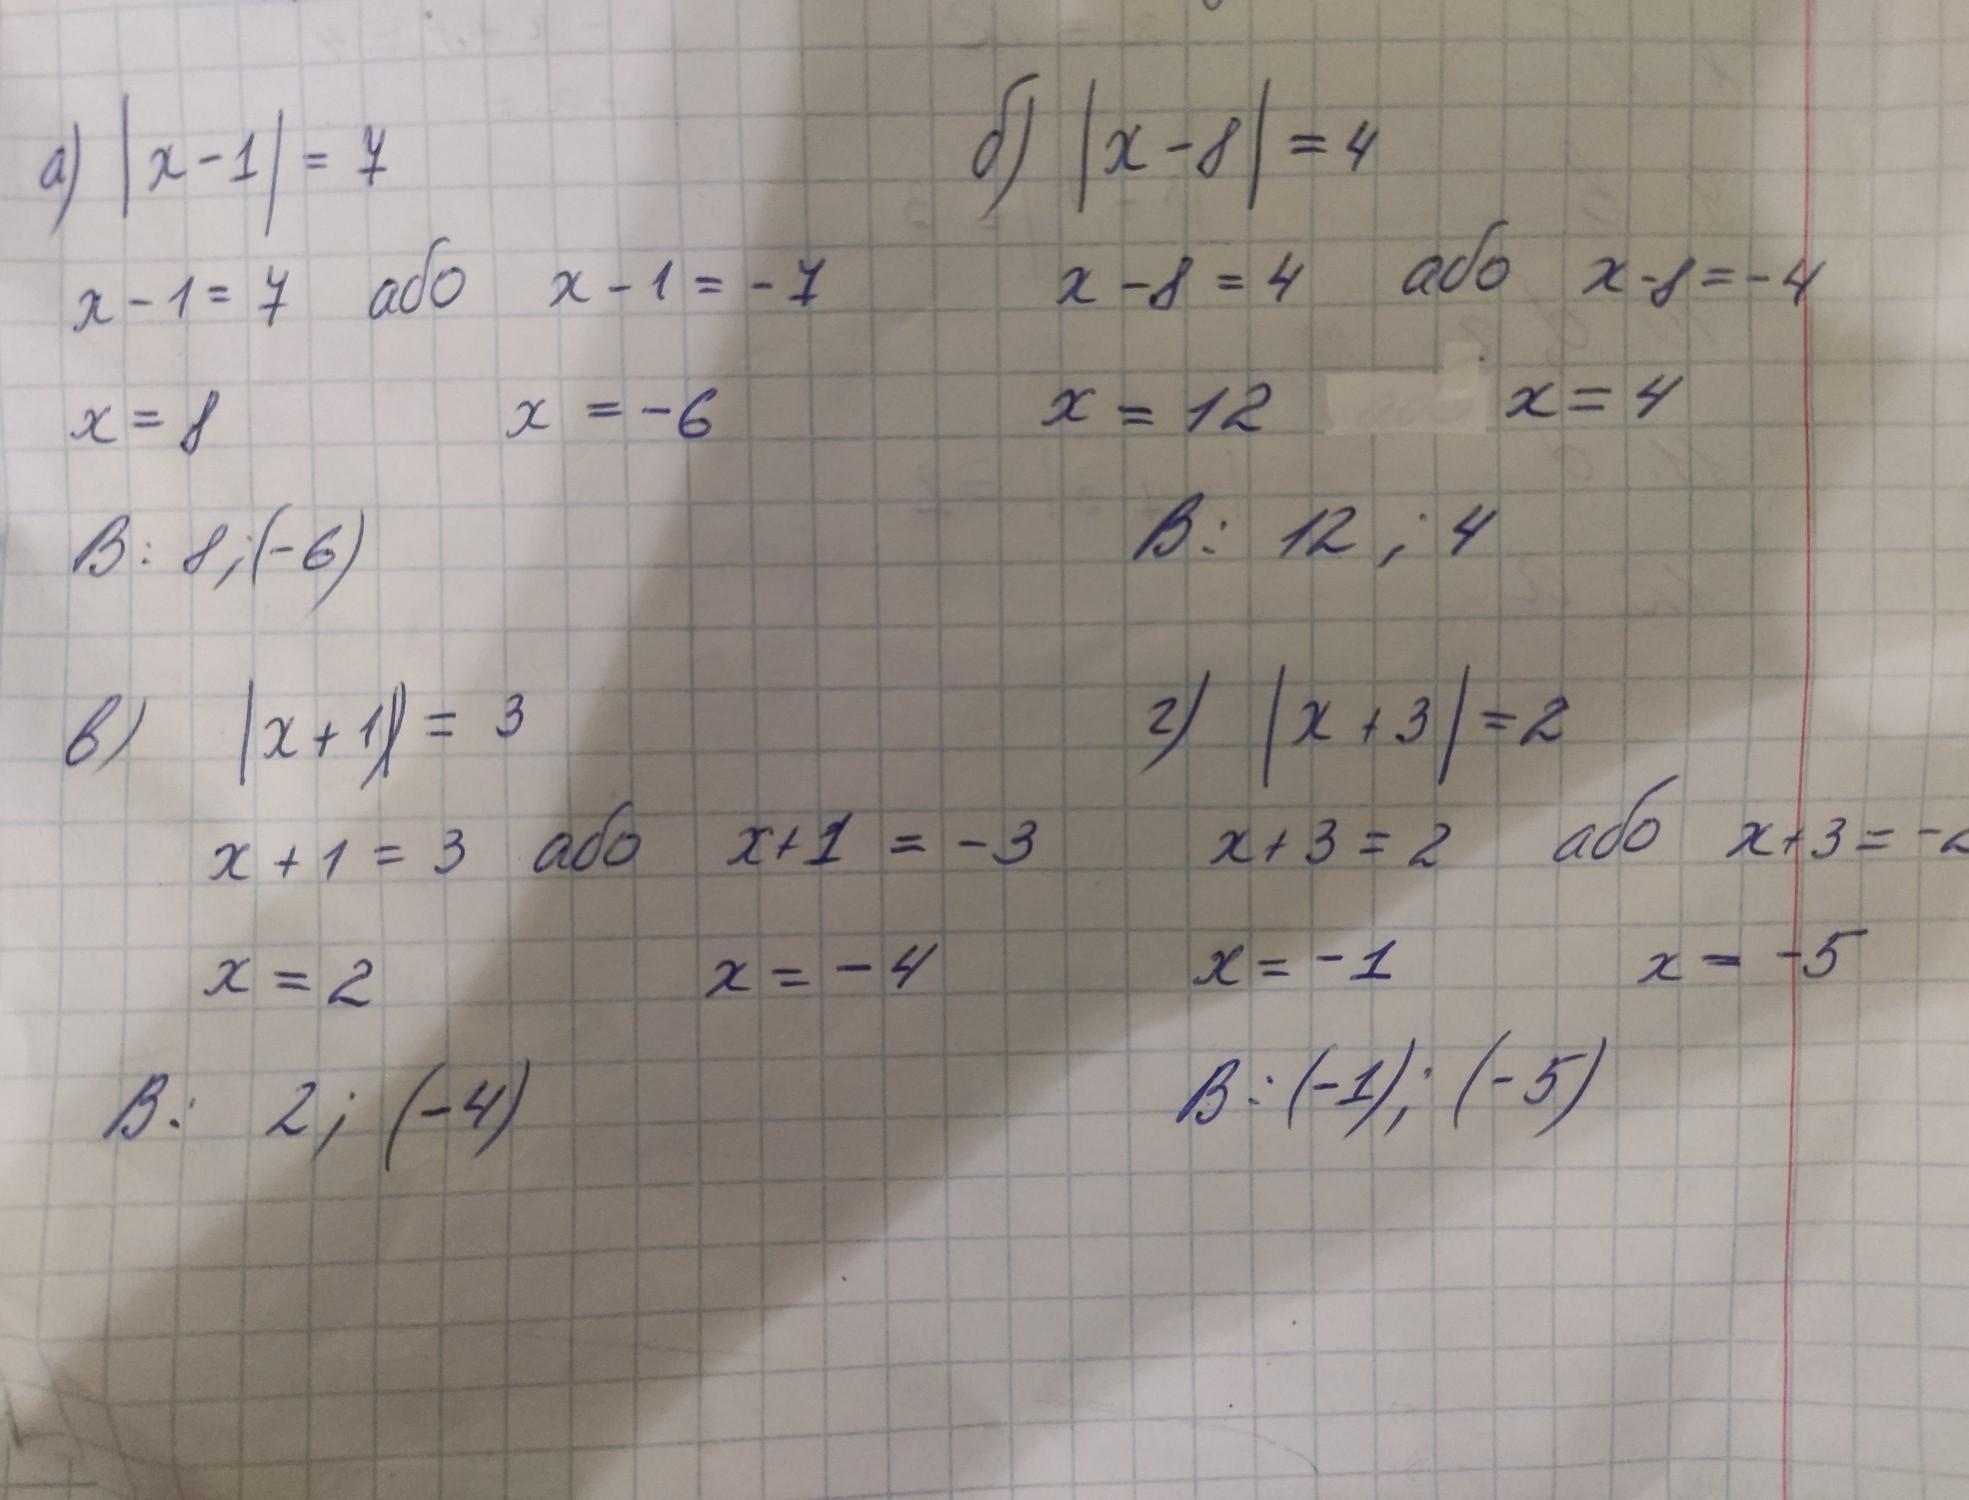 а) |x-1| = 7
x-1=7 або x-1=-7
x=8 x=-6
В: 8;(-6)
б) |x-8|=4
x-8=4 або x-8=-4
x=12 x=4
В: 12; 4
в) |x+1|=3
x+1=3 або x+1=-3
x=2 x=-4
В: 2; (-4)
г) |x+3|=2
x+3=2 або x+3=-2
x=-1 x=-5
В: (-1); (-5)